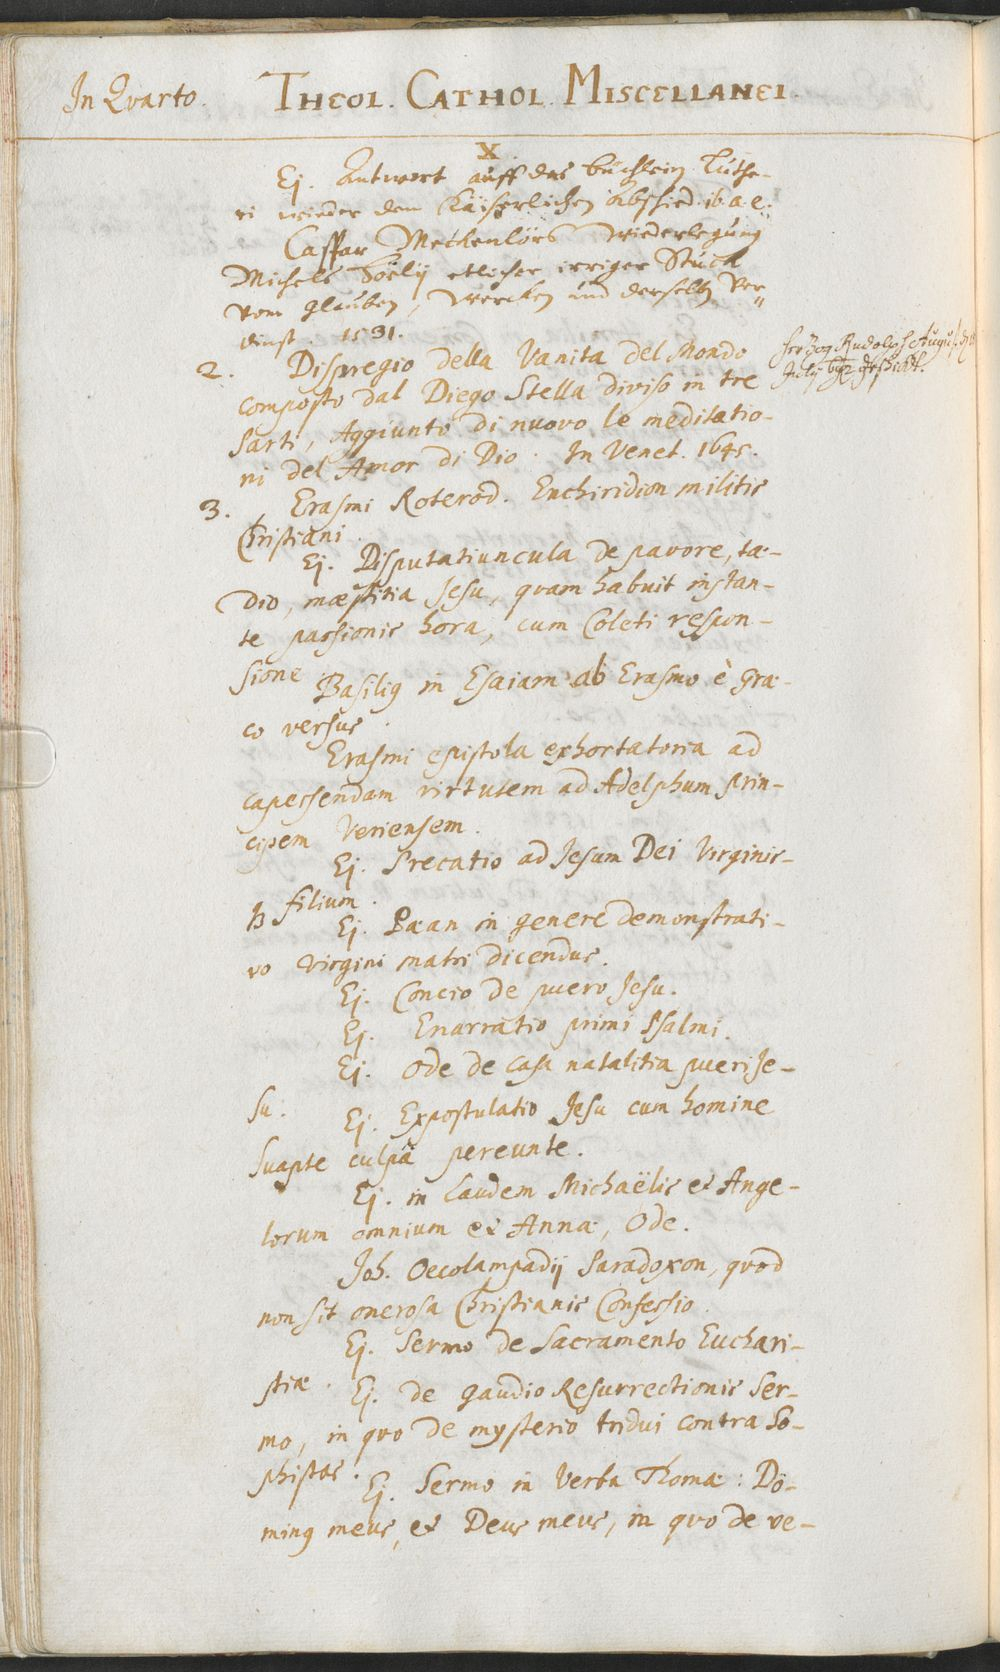 In Qvarto. THEOL. CATHOL. MISCELLANEI.
X
Ej. Antwort auff das büchlein Luthe-
ri wieder den Kaiserlichen Abschied. ib. a. e.
Caspar Meckenlörs Wiederlegung
Michels etlicher irriger Stuck
vom glauben, wercken und derselben Ver-
dinst 1531.
2. Dispregio della Vanita del Mondo
composto dal Diego Stella diviso in tre
Parti, Aggiunto di nuovo le meditatio-
ni del Amor di Dio. In Venet. 1645.
Herzog Rudolph August
July geschickt.
3. Erasmi Roterod. Enchiridion militis
Christiani.
Ej. Disputatiuncula de pavore, tæ-
dio, mæstitia Jesu, quam habuit instan-
te passionis hora, cum Coleti respon-
sione.
Basilig in Esaiam ab Erasmo è Græ-
co versus.
Erasmi epistola exhortatoria ad
capessendam virtutem ad Adelphum Prin-
cipem Veriensem.
Ej. Precatio ad Jesum Dei Virginis-
q3 filium.
Ej. Pæan in genere demonstrati-
vo virgini matri dicendus.
Ej. Concio de puero Jesu.
Ej. Enarratio primi Psalmi.
Ej. Ode de casa natalitia pueri Je-
su.
Ej. Expostulatio Jesu cum homine
suapte culpâ pereunte.
Ej. in Laudem Michaëlis et Ange-
lorum omnium et Annæ, Ode.
Joh. Oecolampadij Paradoxon, quod
non sit onerosa Christianis Confessio.
Ej. Sermo de Sacramento Euchari-
stiæ.
Ej. de gaudio Resurrectionis Ser-
mo, in quo de mysterio tridui contra So-
phistas.
Ej. Sermo in Verba Thomæ: Do-
ming meus, et Deus meus, in quo de ve-